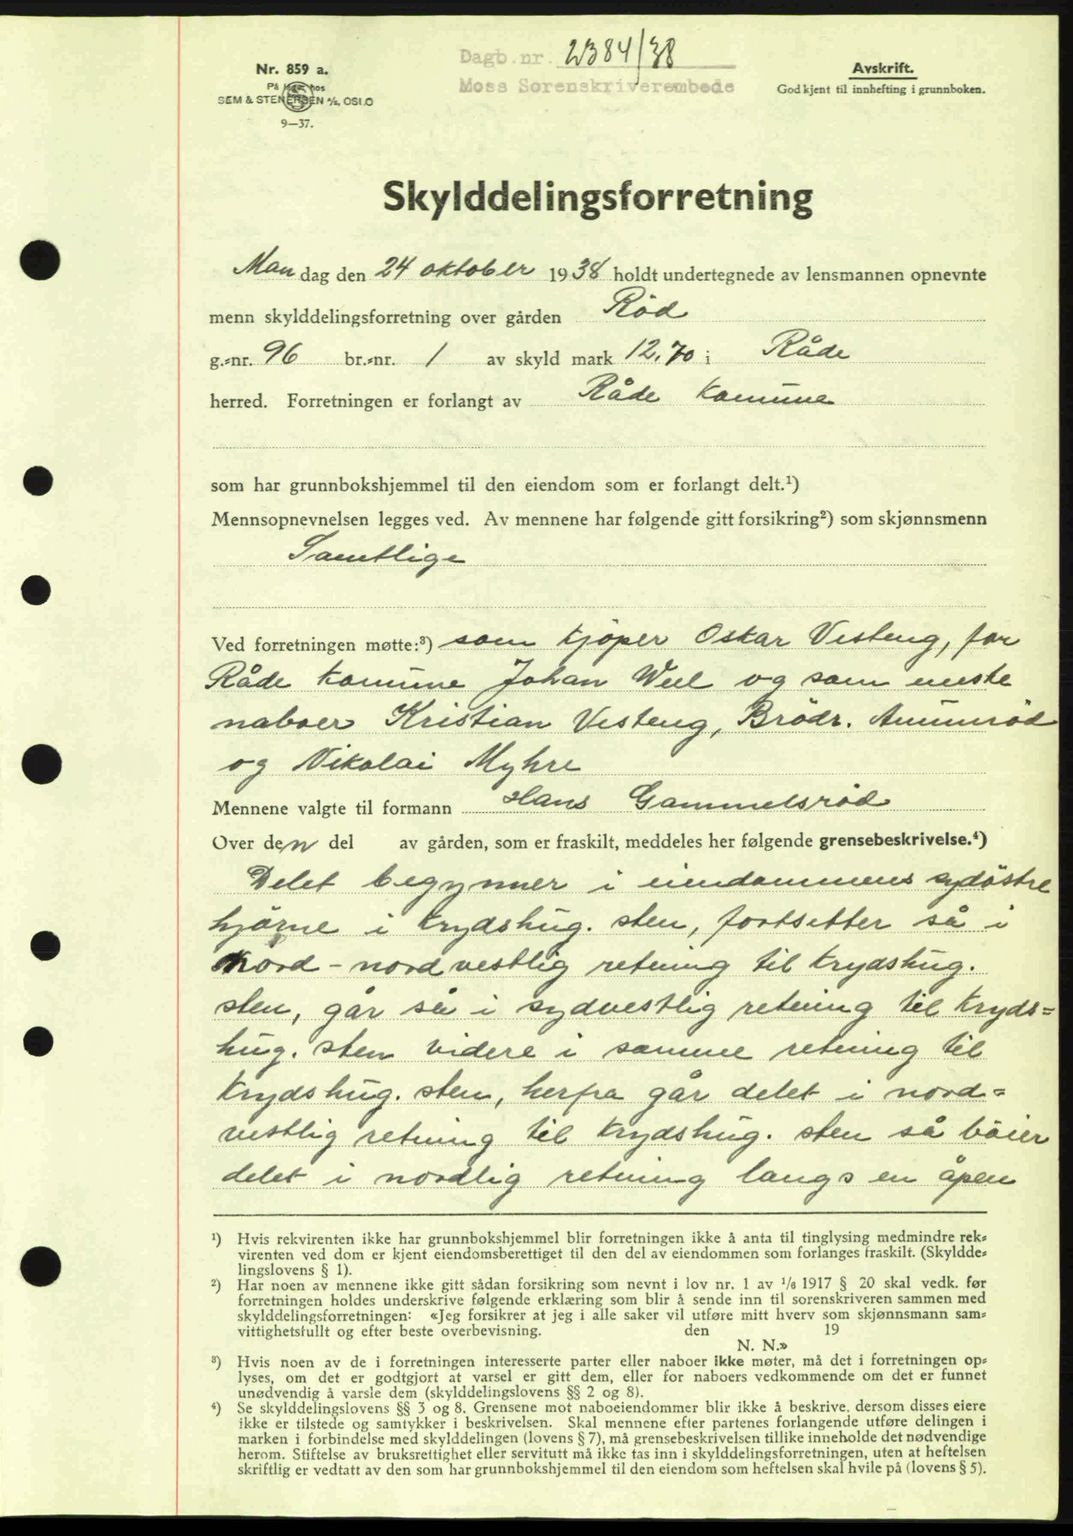 Dagb. nr. 2384/38
Moss Sorenskriverembede
Nr. 859 a.
På lager hos
SEM & STENERSEN A/S, OSLO
9—37.
Avskrift.
Godkjent til innhefting i grunnboken.
Skylddelingsforretning
Mandag den 24 oktober 1938 holdt undertegnede av lensmannen opnevnte
menn skylddelingsforretning over gården Röd
g.=nr. 96 br.=nr. 1 av skyld mark 12,70 i Råde
herred. Forretningen er forlangt av Råde komune
som har grunnbokshjemmel til den eiendom som er forlangt delt.¹)
Mennsopnevnelsen legges ved. Av mennene har følgende gitt forsikring²) som skjønnsmenn
Samtlige
Ved forretningen møtte:³) som kjöper Oskar Vesteng, for
Råde komune Johan Weel og som eneste
naboer Kristian Vesteng, Brödr. Amunröd
og Nikolai Myhre
Mennene valgte til formann Hans Gammelsröd
Over den del av gården, som er fraskilt, meddeles her følgende grensebeskrivelse.⁴)
Delet begynner i eiendommens sydöstre
hjörne i krydshug. sten, fortsetter så i
nord-nordvestlig retning til krydshug.
sten, går så i sydvestlig retning til kryds=
hug. sten videre i samme retning til
krydshug. sten, herfra går delet i nord=
vestlig retning til krydshug. sten så böier
delet i nordlig retning langs en åpen
¹) Hvis rekvirenten ikke har grunnbokshjemmel blir forretningen ikke å anta til tinglysing medmindre rek=
virenten ved dom er kjent eiendomsberettiget til den del av eiendommen som forlanges fraskilt. (Skyldde=
lingslovens § 1).
²) Har noen av mennene ikke gitt sådan forsikring som nevnt i lov nr. 1 av 1/6 1917 § 20 skal vedk. før
forretningen holdes underskrive følgende erklæring som blir å sende inn til sorenskriveren sammen med
skylddelingsforretningen: «Jeg forsikrer at jeg i alle saker vil utføre mitt hverv som skjønnsmann sam=
vittighetsfullt og efter beste overbevisning. den 19
N. N.»
³) Hvis noen av de i forretningen interesserte parter eller naboer ikke møter, må det i forretningen op=
lyses, om det er godtgjort at varsel er gitt dem, eller for naboers vedkommende om det er funnet
unødvendig å varsle dem (skylddelingslovens §§ 2 og 8).
⁴) Se skylddelingslovens §§ 3 og 8. Grensene mot naboeiendommer blir ikke å beskrive, dersom disses eiere
ikke er tilstede og samtykker i beskrivelsen. Skal mennene efter partenes forlangende utføre delingen i
marken i forbindelse med skylddelingen (lovens § 7), må grensebeskrivelsen tillike inneholde det nødvendige
herom. Stiftelse av bruksrettighet eller servitutt må ikke tas inn i skylddelingsforretningen, uten at heftelsen
skriftlig er vedtatt av den som har grunnbokshjemmel til den eiendom som heftelsen skal hvile på (lovens § 5).